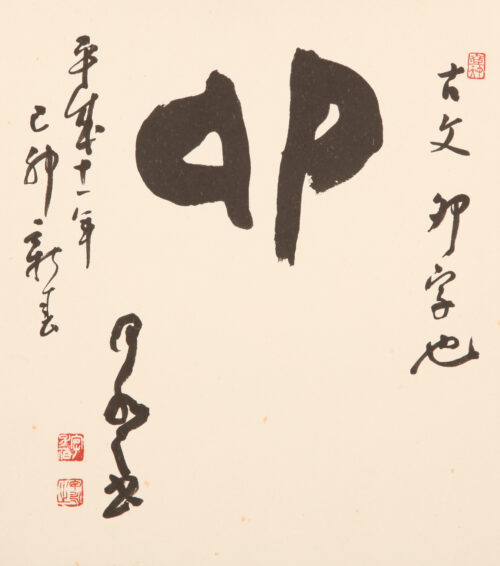 古文 卯字也
卯
平成十一年
己卯新春